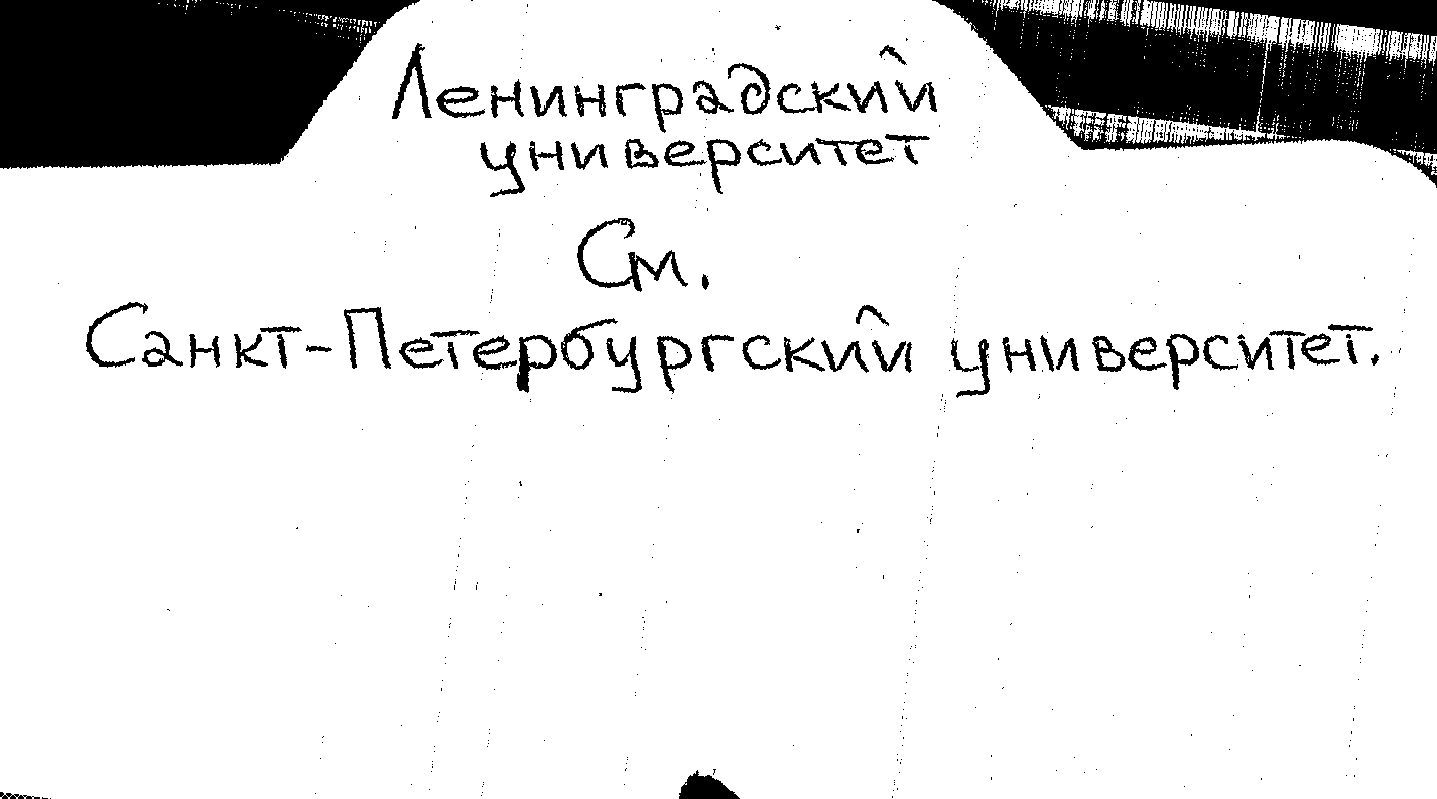 Ленинградский
университет
См.
Санкт-Петербургский университет.